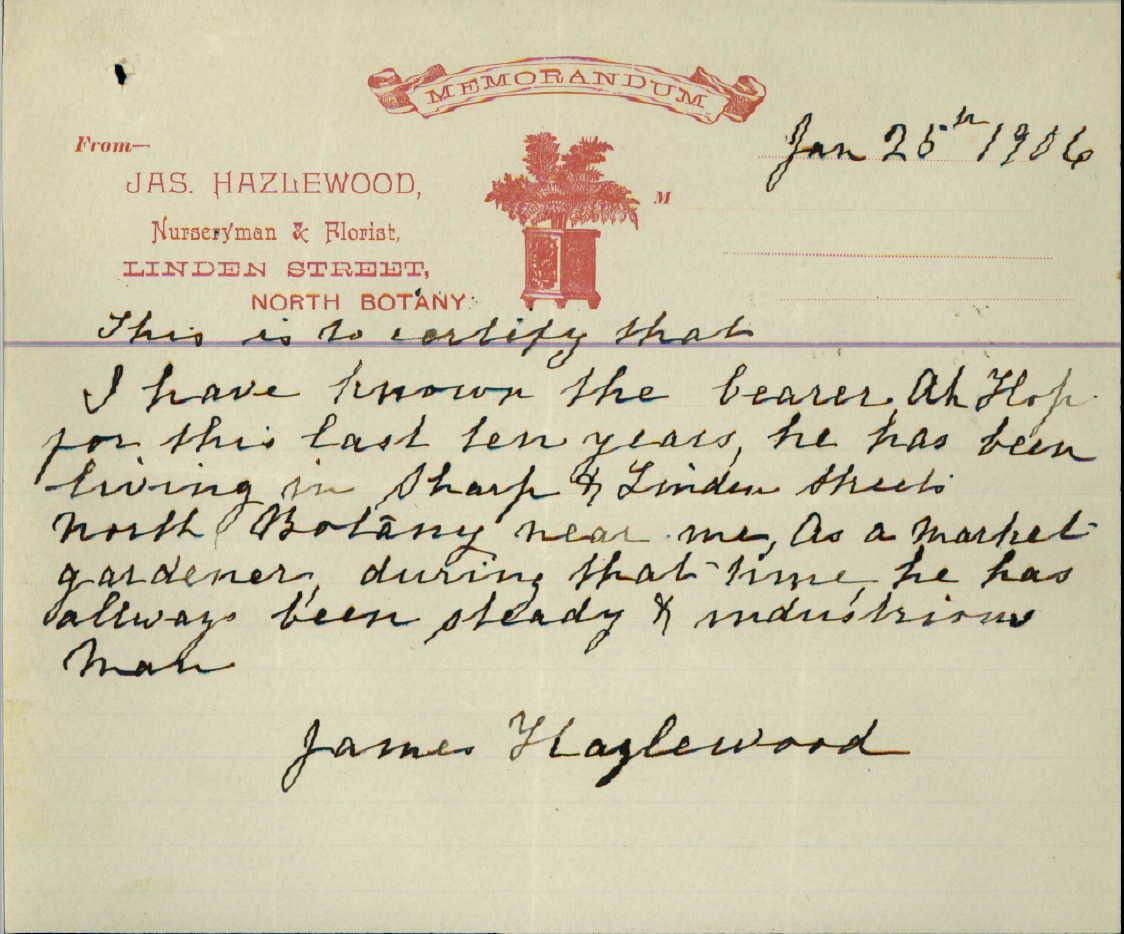 MEMORANDUM
Jan 25th 1906
From—
JAS. HAZLEWOOD,
M
Nurseryman & Florist,
LINDEN STREET,
NORTH BOTANY
This is to certify that
I have known the bearer, Ah Hop
for this last ten years, he has been
living in Sharp & Linden streets
North Botany near me, As a market
gardener, during that time he has
allways been steady & industrious
Man
James Hazlewood